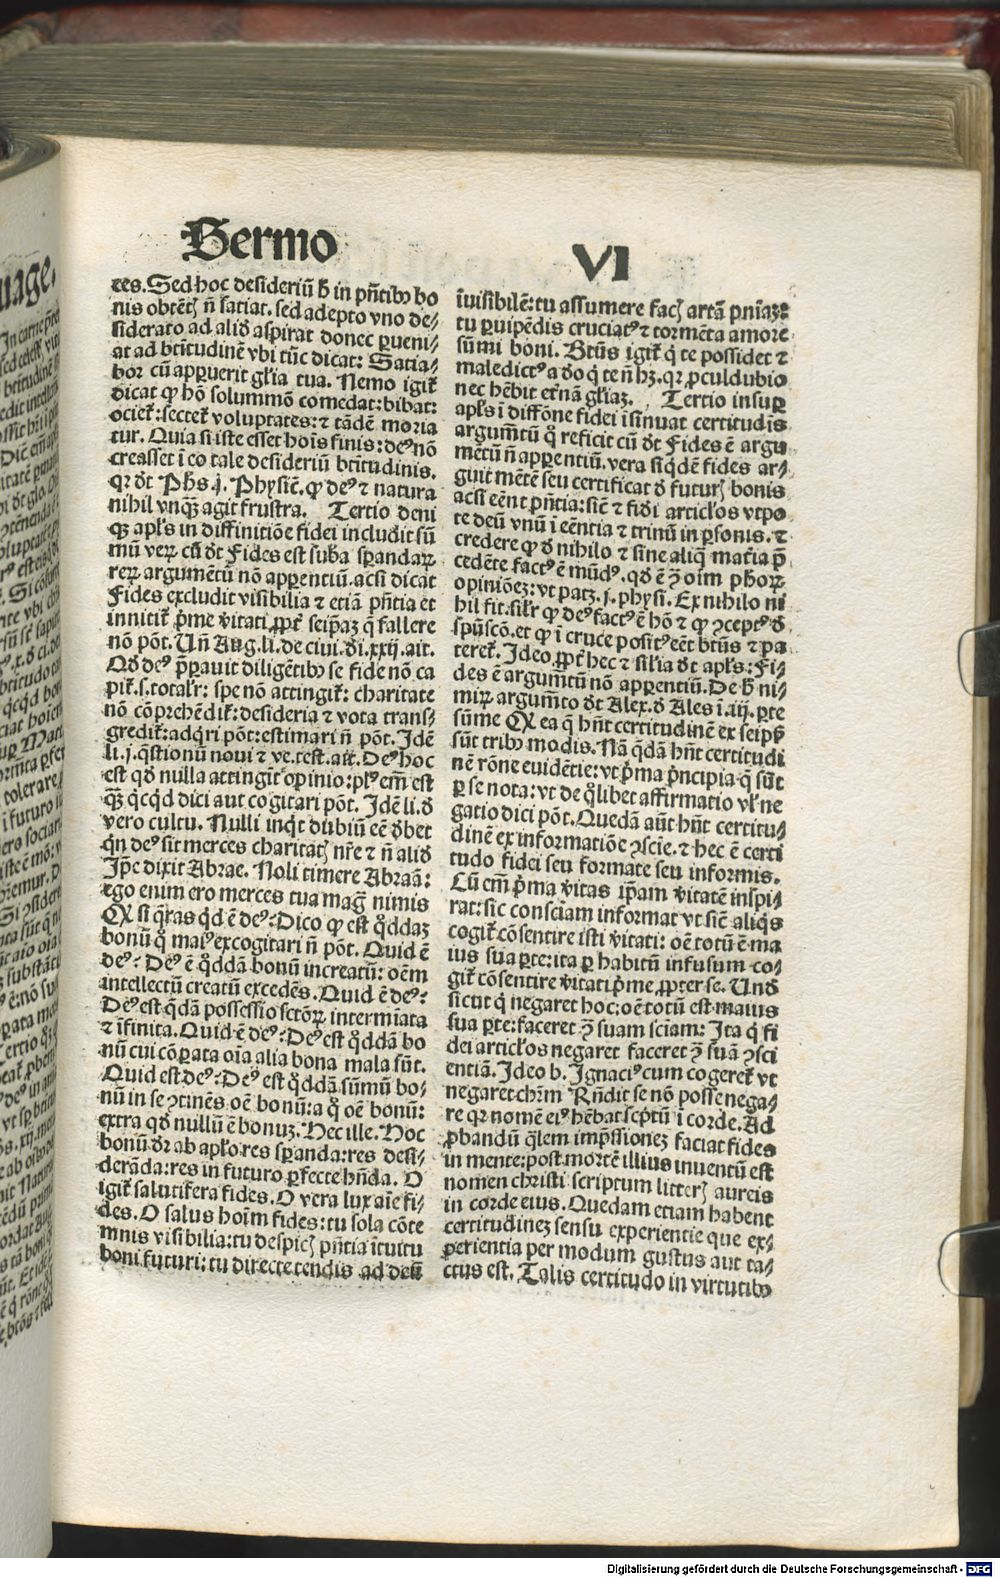 Sermo VI
ces. Sed hoc desideriū ħ in pñtibꝰ bo
nis obtētꝭ ñ satiat. sed adepto vno de⸗
siderato ad aliđ aspirat donec ꝑueni⸗
at ad btītudinē vbi tūc dicat: Satia⸗
bor cū apparuerit glīa tua. Nemo igit̃
dicat ꝙ hō solummō comedat: bibat:
ociet̃: sectet̃ voluptates: ⁊ tādē moria
tur. Quia si iste esset hoīs finis: deꝰ nō
creasset ī eo tale desideriū btītudinis.
qꝛ đt Phs .j. Phisic̄. ꝙ deꝰ ⁊ natura
nihil vnqꝫ agit frustra. Tertio deni
qꝫ apl̄s in diffinitiōe fidei includit sū
mū veꝝ cū đt Fides est suba sperandaꝝ
reꝝ argumētū nō apparentiū. acsi dicat
Fides excludit visibilia ⁊ etiā pñtia et
innitit̃ p̄me v̄itati ꝓpt̃ seip̄aꝫ q̄ fallere
nō pōt. Uñ Aug. li. de ciui. đi .xxij. ait.
Qđ deꝰ p̄parauit diligētibꝰ se fide nō ca
pit̃ .s. totalr̃: spe nō attingit̃: charitate
nō cōprehēdit̃: desideria ⁊ vota trans⸗
gredit̃: adq̇ri pōt: estimari ñ pōt. Idē
li. j. q̄stionū noui ⁊ ve. test. ait. Deꝰ hoc
est qđ nulla attingit opinio: plꝰ em̄ est
qꝫ̄ qcqđ dici aut cogitari pōt. Idē li. đ
vero cultu. Nulli inqt dubiū eē đbet
q̇n deꝰ sit merces charitatꝭ nr̄e ⁊ ñ aliđ
Ip̄e dixit Abrae. Noli timere Abraā:
ego enim ero merces tua magꝫ nimis
Qꝫ si q̄ras qđ ē deꝰ? Dico ꝙ est q̊ddaꝫ
bonū q̊ maiꝰ excogitari ñ pōt. Quid ē
deꝰ? Deꝰ ē q̊ddā bonū increatū: oēm
intellectū creatū excedēs. Quid ē deꝰ?
Deꝰ est q̄dā possessio sctōꝝ intermīata
⁊ īfinita. Quid ē deꝰ? Deꝰ est q̊ddā bo
nū cui cōparata oīa alia bona mala sūt.
Quid est deꝰ? Deꝰ est q̊ddā sūmū bo⸗
nū in se ꝯtinēs oē bonū: a q̊ oē bonū:
extra qđ nullū ē bonuꝫ. Hec ille. Hoc
bonū đr ab apl̄o res speranda: res desi⸗
derāda: res in futuro ꝑfecte hñda. O
igit̃ salutifera fides. O vera lux aīe fi⸗
des. O salus hoīm fides: tu sola cōte
mnis visibilia: tu despicꝭ pñtia ītuitu
boni futuri: tu directe tendis ad deū
īuisibilē: tu assumere facꝭ artā pñiaꝫ:
tu ꝑuipēdis cruciatꝰ ⁊ tormēta amore
sūmi boni. Btūs igit̃ q̇ te possidet ⁊
maledictꝰ a đo q̇ te ñ hꝫ. qꝛ ꝓculdubio
nec hēbit et̃nā gl̄iaꝫ. Tertio insuꝑ
apl̄s ī diffōne fidei īsinuat certitudīs
argum̄tū q̊ reficit cū đt Fides ē argu
mētū ñ apparentiū. vera siq̇dē fides ar⸗
guit mētē seu certificat đ futurꝭ bonis
acsi eēnt pñtia: sic̄ ⁊ fidi articl̄os vtpo
te deū vnū ī eēntia ⁊ trinū in ꝑsonis. ⁊
credere ꝙ đ nihilo ⁊ sine aliq̄ mat̃ia p̄
cedēte factꝰ ē mūdꝰ. qđ ē ꝯ̄ oīm phōꝝ
opiniōeꝫ: vt patꝫ .j. physi. Ex nihilo ni
hil fit. sil̄r ꝙ deꝰ factꝰ ē hō ⁊ ꝙ ꝯceptꝰ đ
spūscō. et ꝙ ī cruce positꝰ eēt btūs ⁊ pa
teret̃. Ideo ꝓpt̃ hec ⁊ sil̄ia đt apl̄s: Fi⸗
des ē argum̄tū nō apparentiū. De ħ ni⸗
miꝝ argum̄to đt Alex. đ Ales ī .iij. ꝑte
sūme Qꝫ ea q̄ hñt certitudinē ex seip̄ꝭ
sūt tribꝰ modis. Nā q̄dā hñt certitudi
nē rōne euidētie: vt p̄ma p̄ncipia q̄ sūt
ꝑ se nota: vt de q̊libet affirmatio vl̄ ne
gatio dici pōt. Quedā aūt hñt certitu⸗
dinē ex informatiōe ꝯscie. ⁊ hec ē certi
tudo fidei seu formate seu informis.
Cū em̄ p̄ma v̄itas ip̄am v̄itatē inspi⸗
rat: sic consciam informat vt sic̄ aliq̇s
cogit̃ cōsentire isti v̄itati: oē totū ē ma
ius sua ꝑte: ita ꝑ habitū infusum co⸗
git̃ cōsentire v̄itati p̄me, ꝓpter se. Unđ
sicut q̇ negaret hoc: oē totū est maius
sua ꝑte: faceret ꝯ̄ suam sciam: Ita q̇ fi
dei articl̄os negaret faceret ꝯ̄ suā ꝯsci
entiā. Ideo b. Ignaciꝰ cum cogeret̃ vt
negaret chr̄m Rñdit se nō posse nega⸗
re qꝛ nomē eiꝰ hēbat sc̄ptū ī corde. Ad
ꝓbandū q̄lem imp̄ssioneꝫ faciat fides
in mente: post mortē illius inuentū est
nomen christi scriptum litterꝭ aureis
in corde eius. Quedam etiam habent
certitudineꝫ sensu experientie que ex⸗
perientia per modum gustus aut ta⸗
ctus est. Talis certitudo in virtutibꝰ
Digitalisierung gefördert durch die Deutsche Forschungsgemeinschaft - DFG